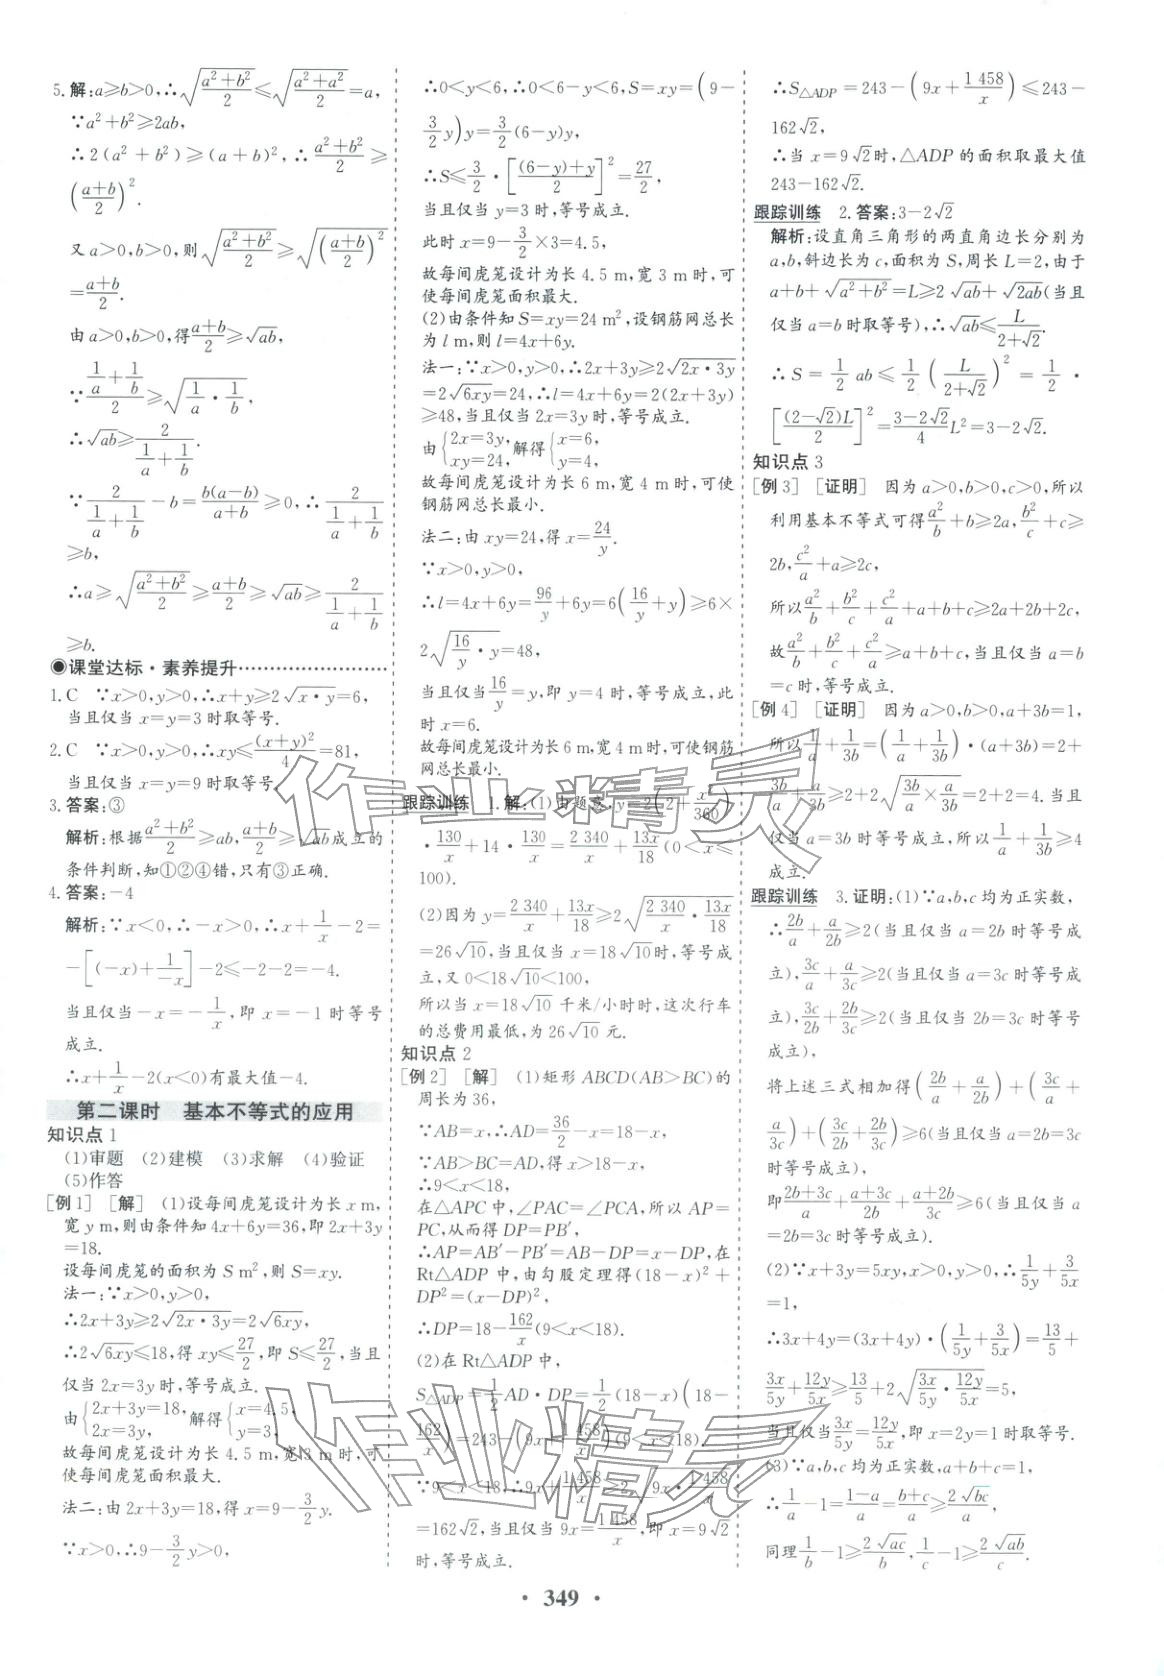 5. 解:∵a≥b>0,∴√((a²+b²)/2)≤√((a²+a²)/2)=a,
∵a²+b²≥2ab,
∴2(a²+b²)≥(a+b)²,∴(a²+b²)/2≥
((a+b)/2)².
又a>0,b>0,则√((a²+b²)/2)≥√(((a+b)/2)²)
=(a+b)/2.
由a>0,b>0,得(a+b)/2≥√(ab),
∵(1/a+1/b)/2≥√(1/a·1/b),
∴√(ab)≥2/(1/a+1/b).
∵2/(1/a+1/b)-b=b(a-b)/(a+b)≥0,∴2/(1/a+1/b)
≥b,
∴a≥√((a²+b²)/2)≥(a+b)/2≥√(ab)≥2/(1/a+1/b)
≥b.
◉课堂达标·素养提升
1. C ∵x>0,y>0,∴x+y≥2√(x·y)=6,
当且仅当x=y=3时取等号.
2. C ∵x>0,y>0,∴xy≤(x+y)²/4=81,
当且仅当x=y=9时取等号.
3. 答案:③
解析:根据(a²+b²)/2≥ab,(a+b)/2≥√(ab)成立的
条件判断,知①②④错,只有③正确.
4. 答案:-4
解析:∵x<0,∴-x>0,∴x+1/x-2=
-[(-x)+1/(-x)]-2≤-2-2=-4.
当且仅当-x=-1/x,即x=-1时等号
成立.
∴x+1/x-2(x<0)有最大值-4.
第二课时 基本不等式的应用
知识点1
(1)审题 (2)建模 (3)求解 (4)验证
(5)作答
[例1] [解] (1)设每间虎笼设计为长x m,
宽y m,则由条件知4x+6y=36,即2x+3y
=18.
设每间虎笼的面积为S m²,则S=xy.
法一:∵x>0,y>0,
∴2x+3y≥2√(2x·3y)=2√(6xy),
∴2√(6xy)≤18,得xy≤27/2,即S≤27/2,当且
仅当2x=3y时,等号成立.
由{2x+3y=18, 2x=3y, 解得{x=4.5, y=3,
故每间虎笼设计为长4.5 m,宽3 m时,可
使每间虎笼面积最大.
法二:由2x+3y=18,得x=9-3/2y.
∵x>0,∴9-3/2y>0,
∴0<y<6,∴0<6-y<6,S=xy=(9-
3/2y)y=3/2(6-y)y,
∴S≤3/2·[((6-y)+y)/2]²=27/2,
当且仅当y=3时,等号成立.
此时x=9-3/2×3=4.5,
故每间虎笼设计为长4.5 m,宽3 m时,可
使每间虎笼面积最大.
(2)由条件知S=xy=24 m²,设钢筋网总长
为l m,则l=4x+6y.
法一:∵x>0,y>0,∴2x+3y≥2√(2x·3y)
=2√(6xy)=24,∴l=4x+6y=2(2x+3y)
≥48,当且仅当2x=3y时,等号成立.
由{2x=3y, xy=24, 解得{x=6, y=4,
故每间虎笼设计为长6 m,宽4 m时,可使
钢筋网总长最小.
法二:由xy=24,得x=24/y.
∵x>0,y>0,
∴l=4x+6y=96/y+6y=6(16/y+y)≥6×
2√(16/y·y)=48,
当且仅当16/y=y,即y=4时,等号成立,此
时x=6.
故每间虎笼设计为长6 m,宽4 m时,可使钢筋
网总长最小.
跟踪训练 1. 解:(1)由题意,y=2(2+x²/360)
·130/x+14·130/x=2 340/x+13x/18(0<x≤
100).
(2)因为y=2 340/x+13x/18≥2√(2 340/x·13x/18)
=26√10,当且仅当x=18√10时,等号成
立,又0<18√10<100,
所以当x=18√10千米/小时时,这次行车
的总费用最低,为26√10元.
知识点2
[例2] [解] (1)矩形ABCD(AB>BC)的
周长为36,
∵AB=x,∴AD=36/2-x=18-x,
∵AB>BC=AD,得x>18-x,
∴9<x<18,
在△APC中,∠PAC=∠PCA,所以AP=
PC,从而得DP=PB′,
∴AP=AB′-PB′=AB-DP=x-DP,在
Rt△ADP中,由勾股定理得(18-x)²+
DP²=(x-DP)²,
∴DP=18-162/x(9<x<18).
(2)在Rt△ADP中,
S△ADP=1/2AD·DP=1/2(18-x)(18-
162/x)=243-(9x+1 458/x)(9<x<18).
∵9<x<18,∴9x+1 458/x≥2√(9x·1 458/x)
=162√2,当且仅当9x=1 458/x,即x=9√2
时,等号成立.
∴S△ADP=243-(9x+1 458/x)≤243-
162√2,
∴当x=9√2时,△ADP的面积取最大值
243-162√2.
跟踪训练 2. 答案:3-2√2
解析:设直角三角形的两直角边长分别为
a,b,斜边长为c,面积为S,周长L=2,由于
a+b+√(a²+b²)=L≥2√(ab)+√(2ab)(当且
仅当a=b时取等号),∴√(ab)≤L/(2+√2).
∴S=1/2ab≤1/2(L/(2+√2))²=1/2·
[((2-√2)L)/2]²=(3-2√2)/4L²=3-2√2.
知识点3
[例3] [证明] 因为a>0,b>0,c>0,所以
利用基本不等式可得a²/b+b≥2a,b²/c+c≥
2b,c²/a+a≥2c,
所以a²/b+b²/c+c²/a+a+b+c≥2a+2b+2c,
故a²/b+b²/c+c²/a≥a+b+c,当且仅当a=b
=c时,等号成立.
[例4] [证明] 因为a>0,b>0,a+3b=1,
所以1/a+1/3b=(1/a+1/3b)·(a+3b)=2+
3b/a+a/3b≥2+2√(3b/a×a/3b)=2+2=4.当且
仅当a=3b时等号成立,所以1/a+1/3b≥4
成立.
跟踪训练 3. 证明:(1)∵a,b,c均为正实数,
∴2b/a+a/2b≥2(当且仅当a=2b时等号成
立),3c/a+a/3c≥2(当且仅当a=3c时等号成
立),3c/2b+2b/3c≥2(当且仅当2b=3c时等号
成立),
将上述三式相加得(2b/a+a/2b)+(3c/a+
a/3c)+(3c/2b+2b/3c)≥6(当且仅当a=2b=3c
时等号成立),
即(2b+3c)/a+(a+3c)/2b+(a+2b)/3c≥6(当且仅当a
=2b=3c时等号成立).
(2)∵x+3y=5xy,x>0,y>0,∴1/5y+3/5x
=1,
∴3x+4y=(3x+4y)·(1/5y+3/5x)=13/5+
3x/5y+12y/5x≥13/5+2√(3x/5y·12y/5x)=5,
当且仅当3x/5y=12y/5x,即x=2y=1时取等号.
(3)∵a,b,c均为正实数,a+b+c=1,
∴1/a-1=(1-a)/a=(b+c)/a≥2√(bc)/a,
同理1/b-1≥2√(ac)/b,1/c-1≥2√(ab)/c.
· 349 ·
作业精灵
作业精灵